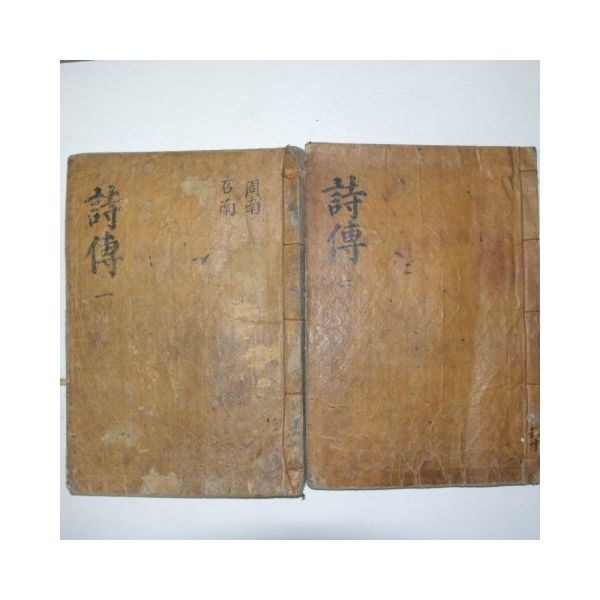 詩傳 一
周南
召南
詩傳 二